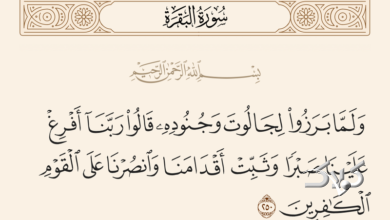 سُورَةُ البَقَرَةِ
بِسْمِ اللَّهِ الرَّحْمَٰنِ الرَّحِيمِ
وَلَمَّا بَرَزُوا۟ لِجَالُوتَ وَجُنُودِهِۦ قَالُوا۟ رَبَّنَآ أَفْرِغْ
عَلَيْنَا صَبْرًا وَثَبِّتْ أَقْدَامَنَا وَٱنصُرْنَا عَلَى ٱلْقَوْمِ
ٱلْكَٰفِرِينَ ٢٥٠